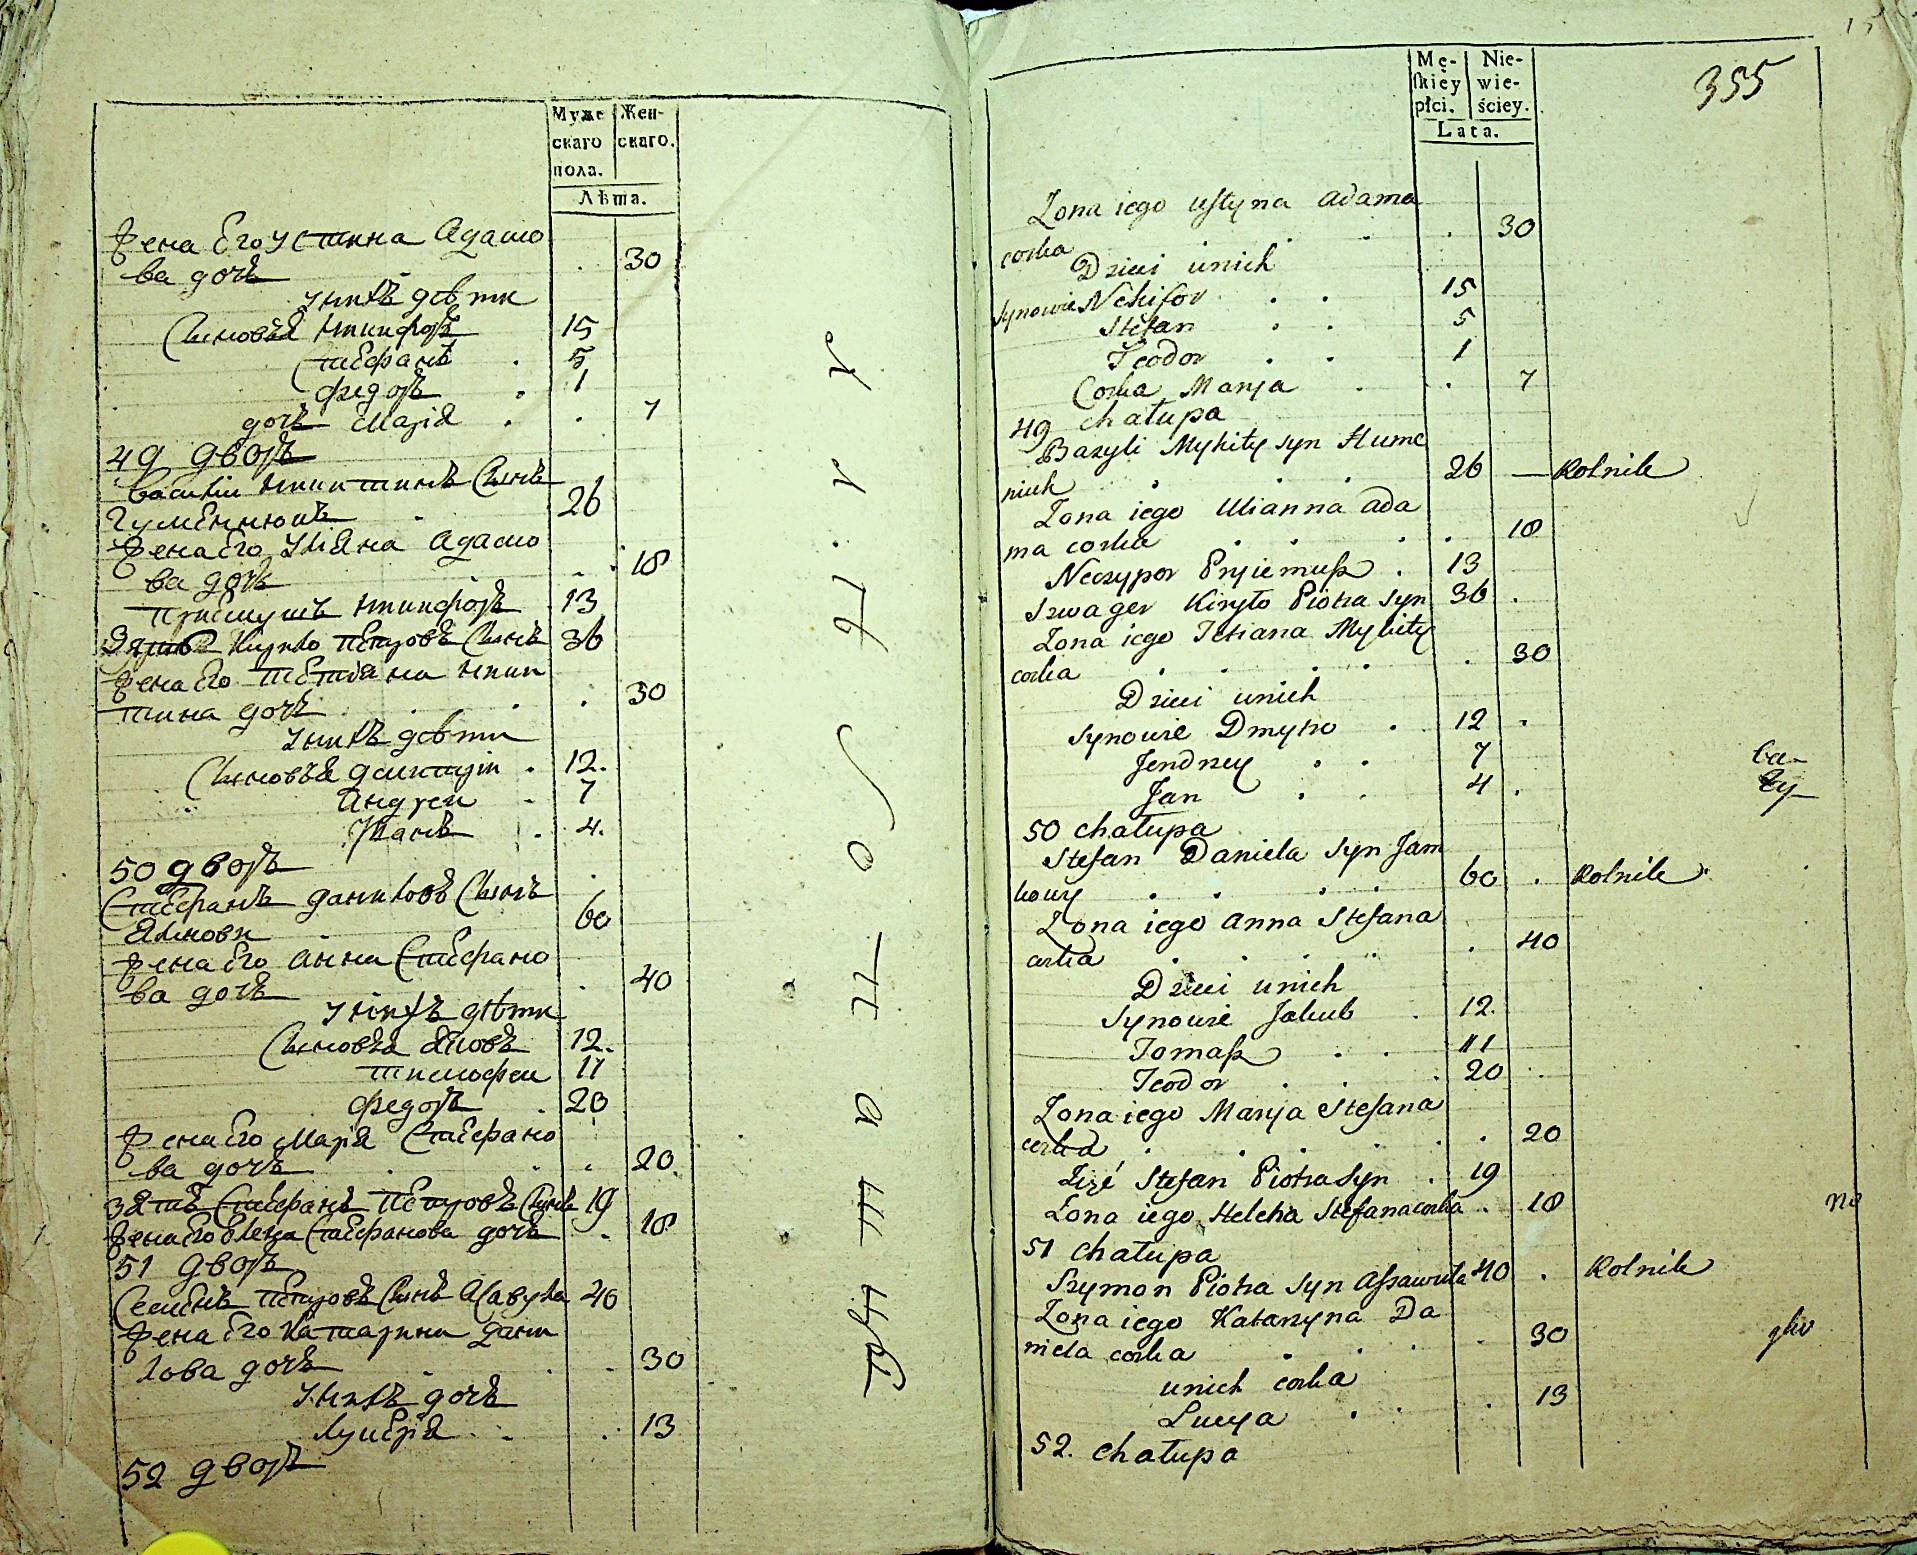 Муже
скаго
пола.
Жен-
скаго.
Лѣта.
Жена Его Устина Адамо
ва дочь 30
Унихъ дѣти
Сыновья Никифоръ 15
Стефанъ 5
Федоръ 1
дочь Марія 7
49 дворъ
Василій Никитинъ Сынъ
Гуменнюкъ 26
Жена Его Ульяна Адамо
ва дочь 18
Приемышъ Никифоръ 13
Зять Кирило Петровъ Сынъ 36
Жена Его Тетіяна Ники
тина дочь 30
Унихъ дѣти
Сыновья Дмитрій 12.
Андреи 7
Иванъ 4.
50 дворъ
Стефанъ Даниловъ Сынъ
Ямковы 60
Жена Его Анна Стефано
ва дочь 40
Унихъ дѣти
Сыновья Яковъ 12.
Тимофеи 11
Федоръ 20
Жена Его Марія Стефано
ва дочь 20.
Зять Стефанъ Петровъ Сынъ 19
Жена Его Елена Стефанова дочь 18
51 дворъ
Семенъ Петровъ Сынъ Асавула 40
Жена Его Катарина Дани
лова дочь 30
Унихъ дочь
Лукерія 13
52 дворъ
15
355
Mę-
ſkiey
płci.
Nie-
wie-
ściey.
Lata.
Zona iego Uſtyna Adama
corka 30
Dzieci unich
Synowie Nekifor 15
Stefan 5
Teodor 1
Corka Marya 7
49 chałupa
Bazyli Mykity Syn Hume
niuk 26 — Rolnik
Zona iego Ulianna Ada
ma corka 18
Neczypor Pryiemuſz 13
Szwager Kiryło Piotra Syn 36
Zona iego Tetiana Mykity
corka 30
Dzieci unich
Synowie Dmytro 12
Jendrzey 7
Jan 4
50 chałupa
Stefan Daniela Syn Jam
kowy 60 Rolnik
Zona iego Anna Stefana
corka 40
Dzieci unich
Synowie Jakub 12.
Tomaſz 11
Teodor 20
Zona iego Marya Stefana
corka 20
Zięć Stefan Piotra Syn 19
Zona iego Helena Stefana corka 18
51 chałupa
Szymon Piotra Syn Aſsawuła 40 Rolnik
Zona iego Katarzyna Da
niela corka 30
unich corka
Lucya 13
52. chałupa